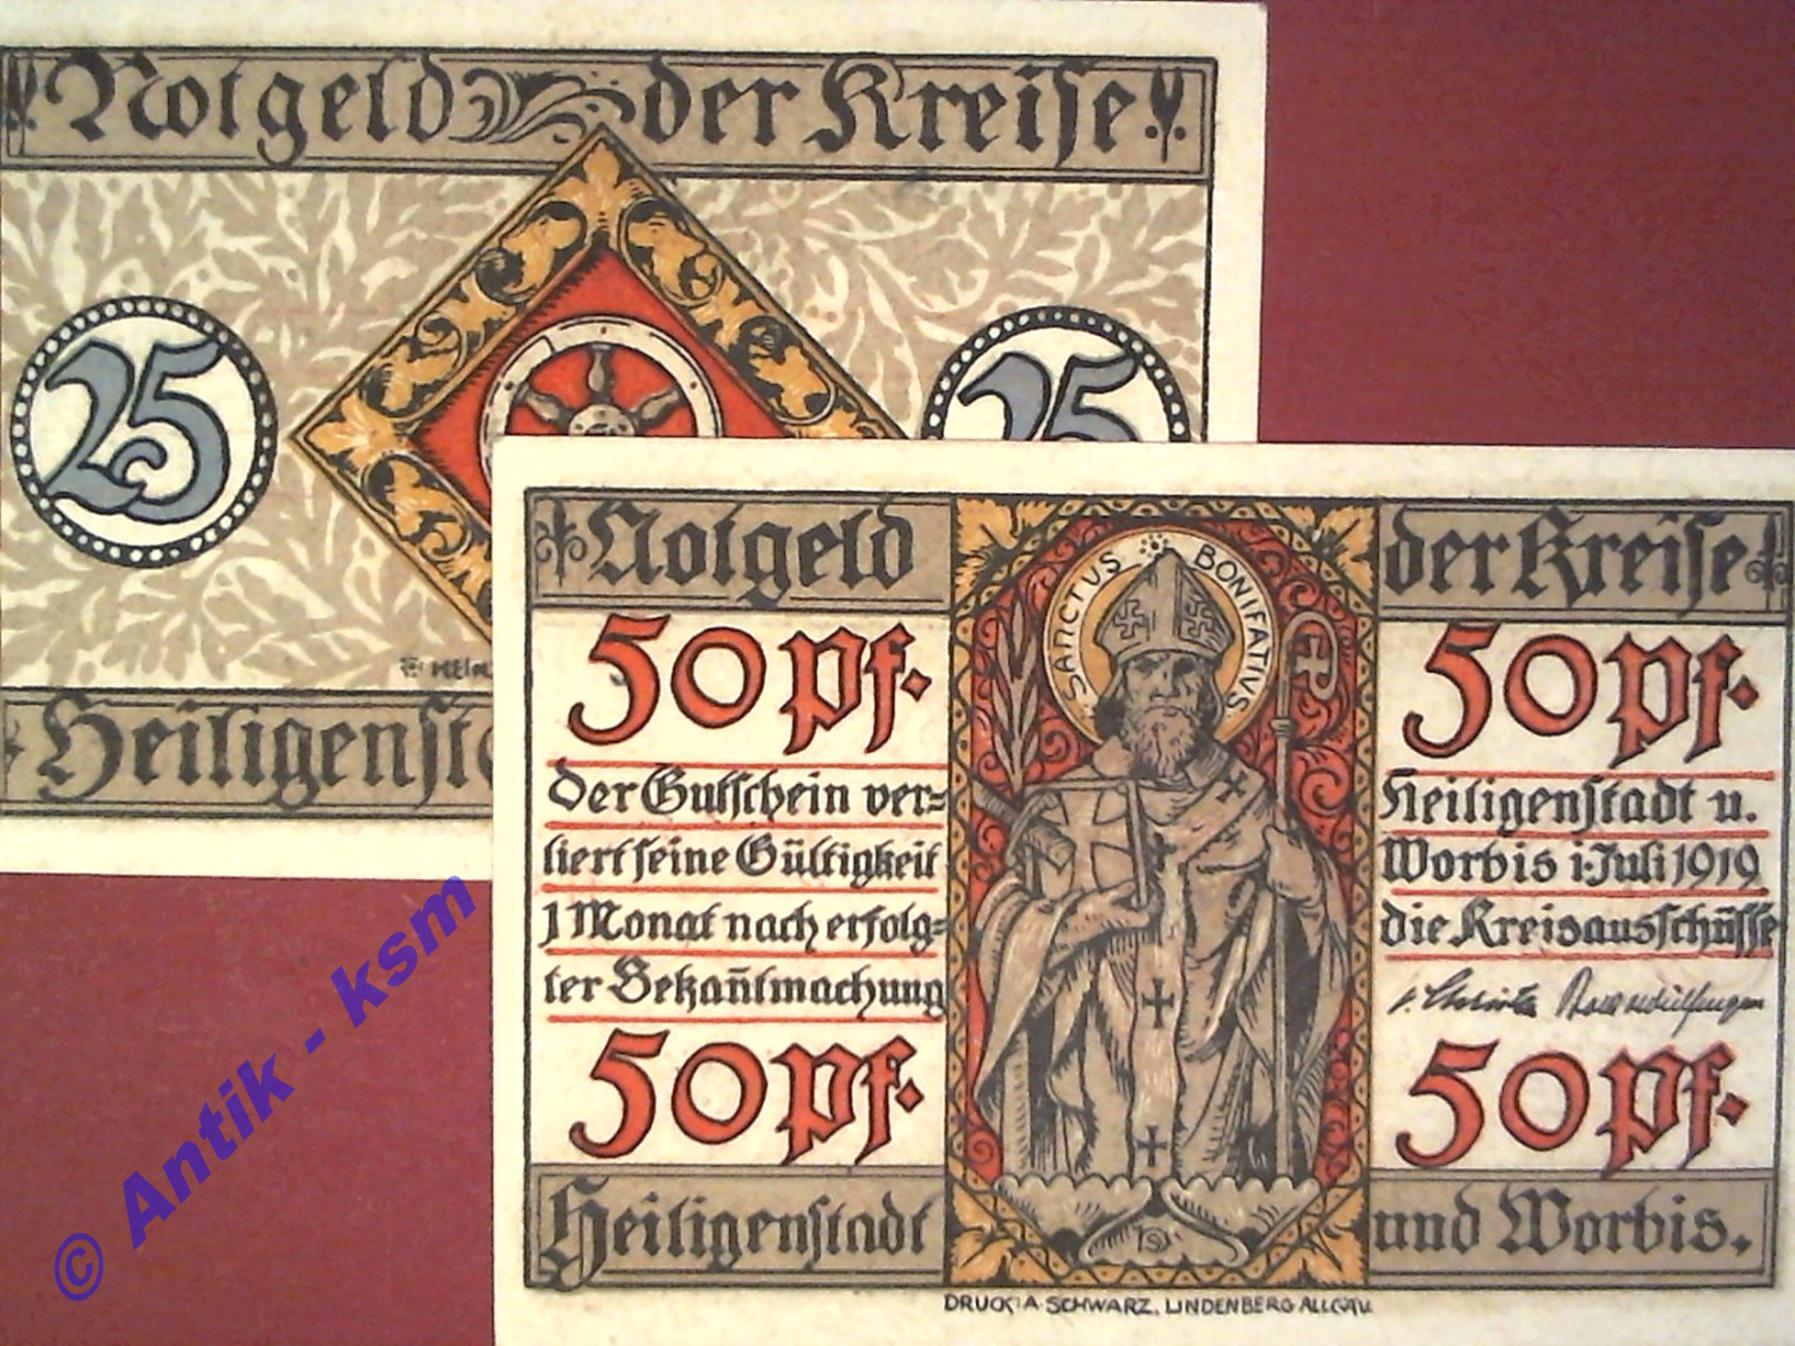 Notgeld der Kreise
25 25
Heiligenst
Notgeld der Kreise
SANCTUS BONIFATIUS
50 Pf. 50 Pf.
Der Gutschein ver=
liert seine Gültigkeit
1 Monat nach erfolg=
ter Bekan̄tmachung
Heiligenstadt u.
Worbis i. Juli 1919
die Kreisausschüsse
50 Pf. 50 Pf.
Heiligenstadt und Worbis.
DRUCK: A. SCHWARZ, LINDENBERG ALLGÄU.
© Antik - ksm